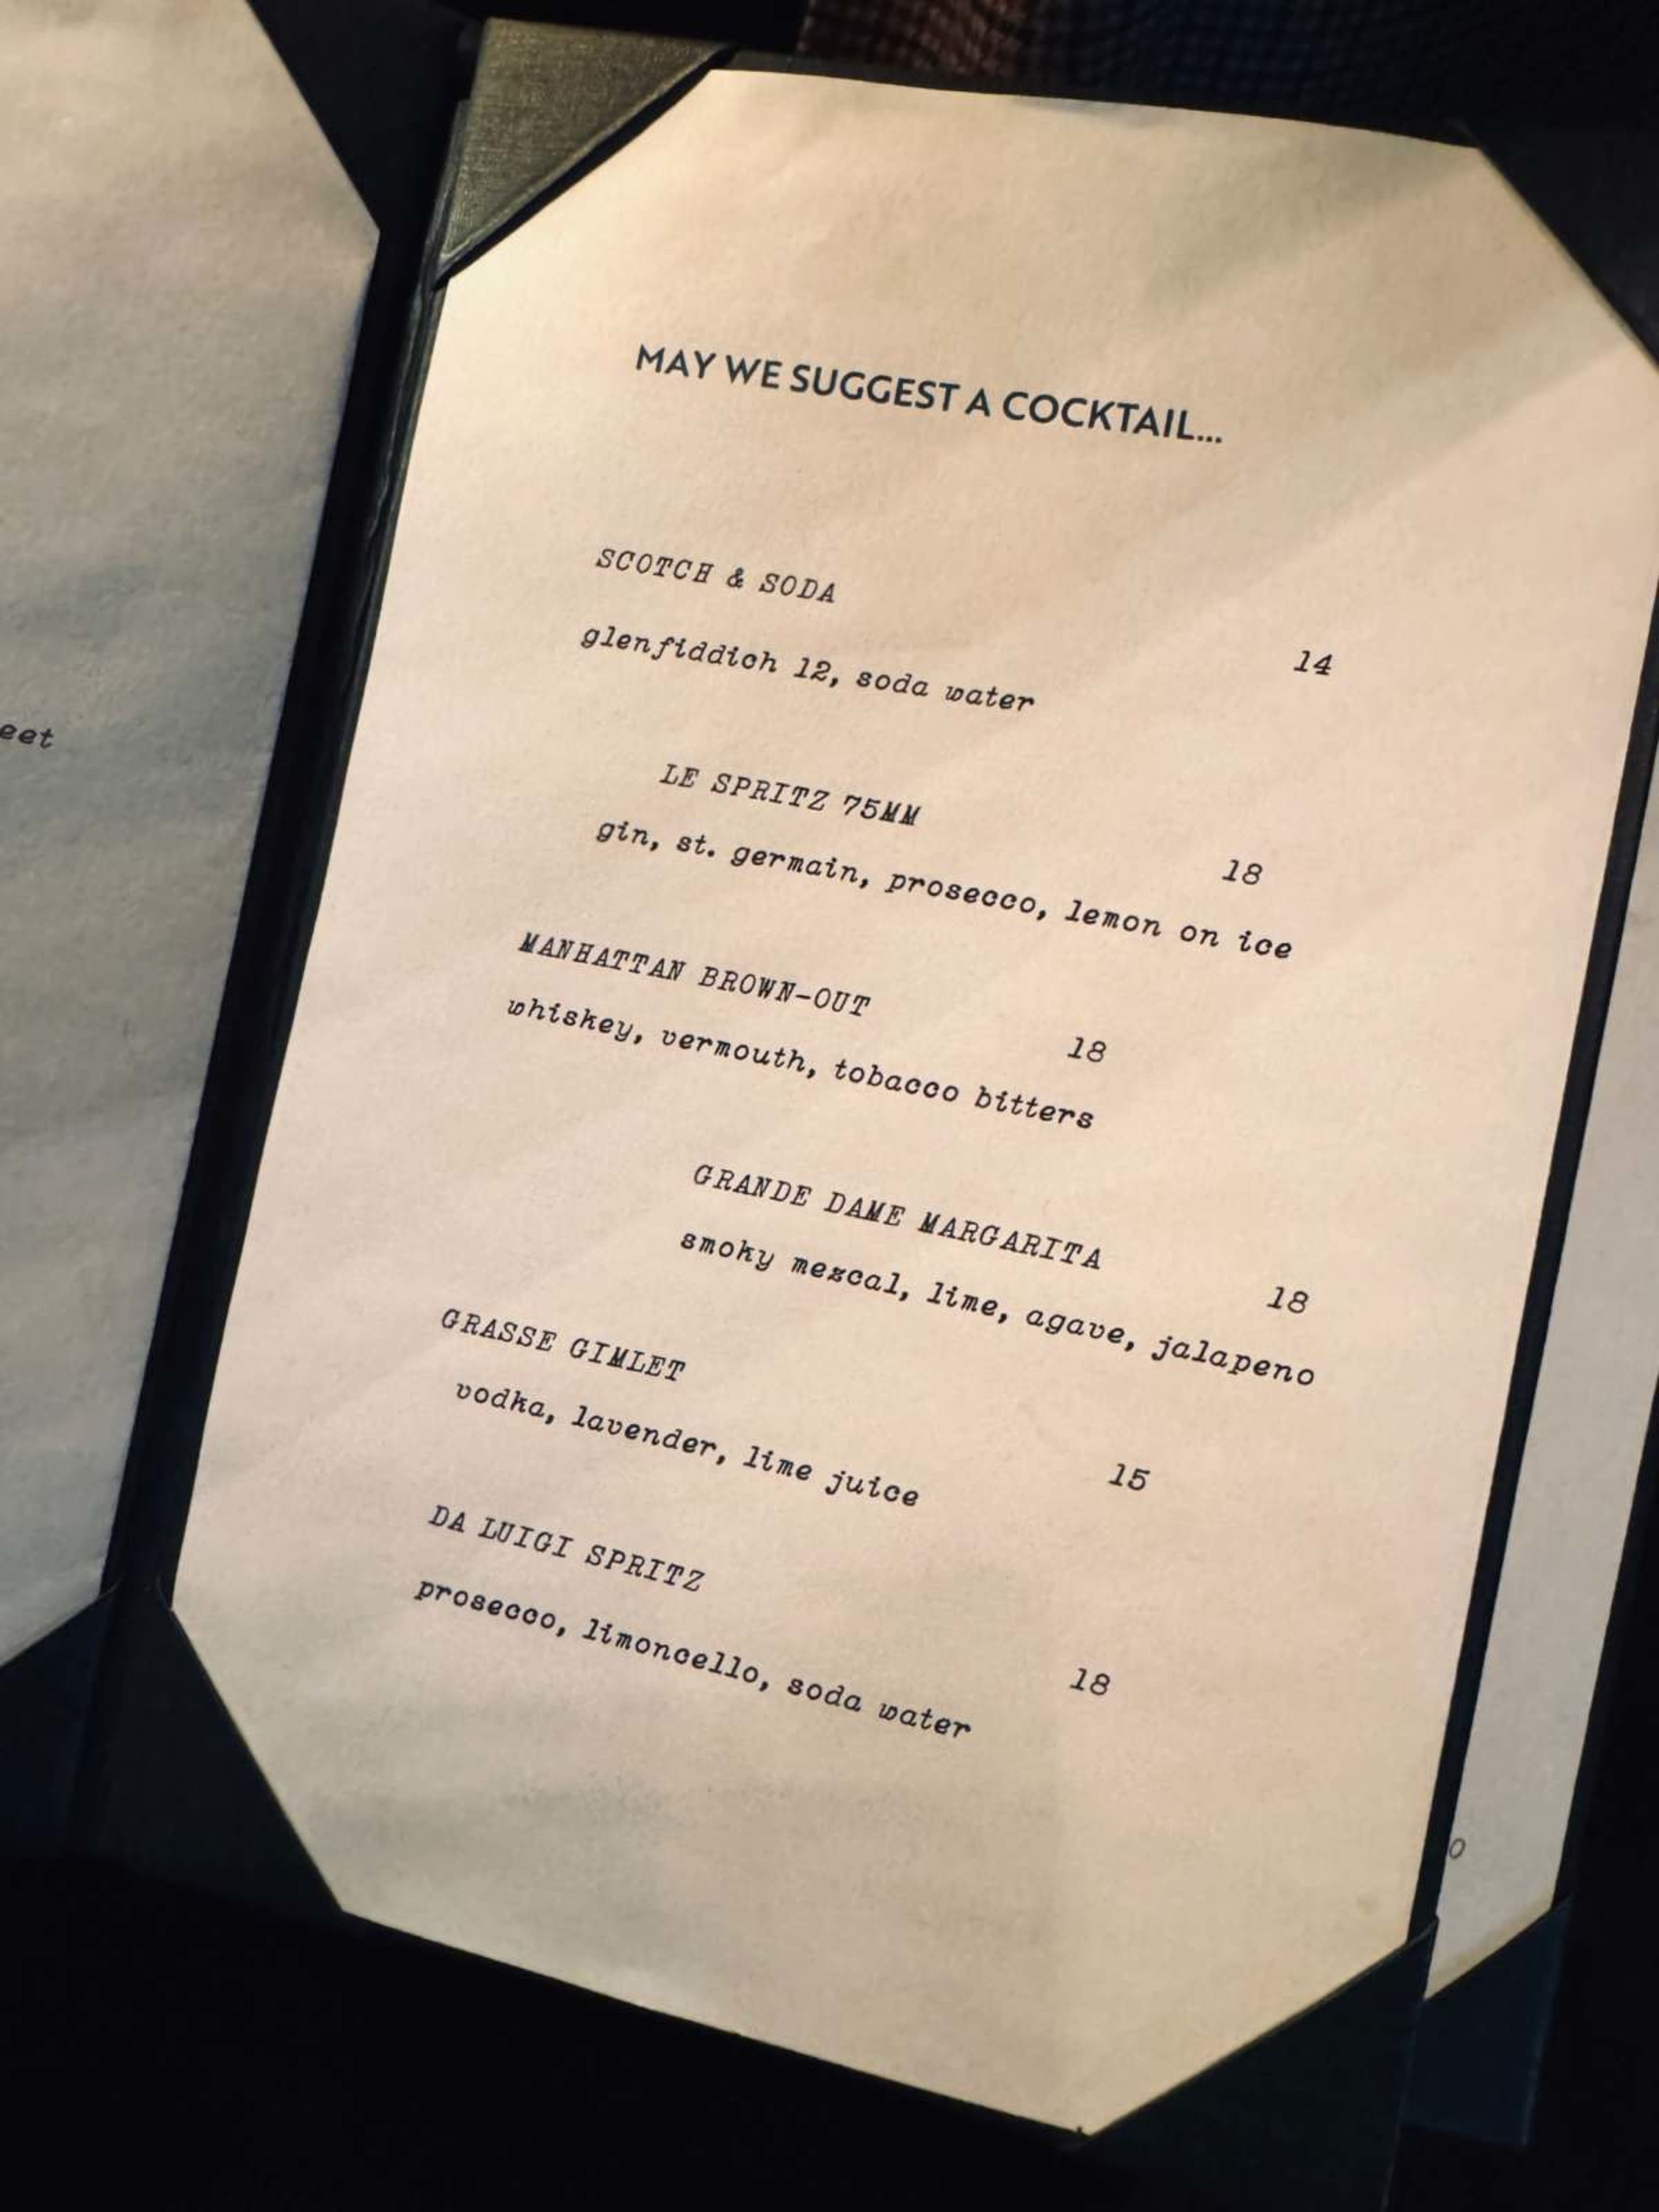 eet
MAY WE SUGGEST A COCKTAIL...
SCOTCH & SODA
glenfiddich 12, soda water 14
LE SPRITZ 75MM
gin, st. germain, prosecco, lemon on ice 18
MANHATTAN BROWN-OUT
whiskey, vermouth, tobacco bitters 18
GRANDE DAME MARGARITA
smoky mezcal, lime, agave, jalapeno 18
GRASSE GIMLET
vodka, lavender, lime juice 15
DA LUIGI SPRITZ
prosecco, limoncello, soda water 18
0